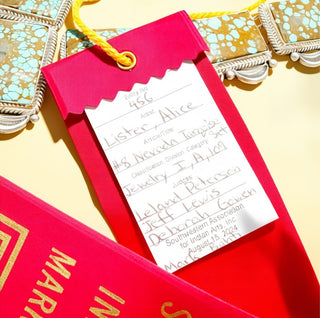 Entry No.
456
Artist
Lister, Alice
Article/Title
#8 Nevada Turquoise Set
Classification, Division, Category
Jewelry I, A, 109
Judges
Leland Petersen
Jeff Lewis
Deborah Gowen
Southwestern Association
for Indian Arts, Inc.
August 15, 2024
S
IN
MAR